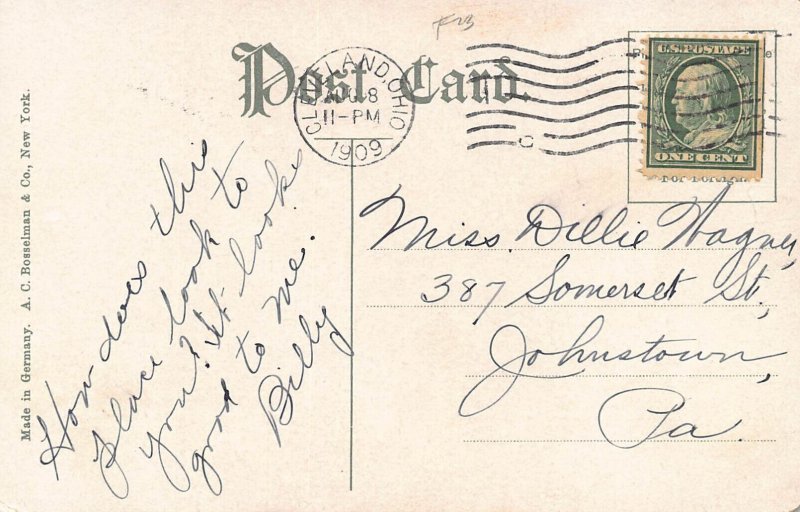 F23
Post Card.
CLEVELAND, OHIO
AUG 8
11-PM
1909
U.S. POSTAGE
ONE CENT
Made in Germany. A. C. Bosselman & Co., New York.
How does this
place look to
you? It looks
good to me.
Billy
Miss. Dillie Wagner,
387 Somerset St.,
Johnstown,
Pa.